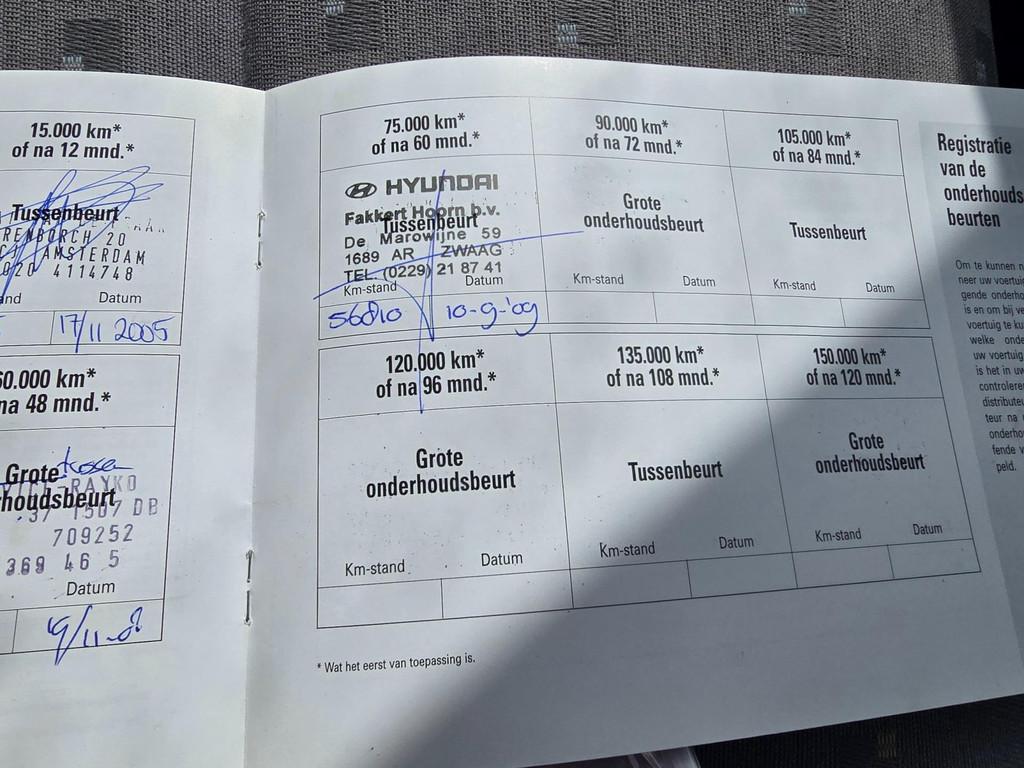 15.000 km*
of na 12 mnd.*
Tussenbeurt
AMSTERDAM
020 4114748
Datum
17/11 2005
60.000 km*
na 48 mnd.*
Grote tussen
rhoudsbeurt
RAYKO
37 1507 DB
709252
369 46 5
Datum
19/11-08
75.000 km*
of na 60 mnd.*
HYUNDAI
Fakkert Hoorn b.v.
Tussenbeurt
De Marowijne 59
1689 AR ZWAAG
TEL. (0229) 21 87 41
Km-stand Datum
56810 10-9-'09
90.000 km*
of na 72 mnd.*
Grote
onderhoudsbeurt
Km-stand Datum
105.000 km*
of na 84 mnd.*
Tussenbeurt
Km-stand Datum
120.000 km*
of na 96 mnd.*
Grote
onderhoudsbeurt
Km-stand Datum
135.000 km*
of na 108 mnd.*
Tussenbeurt
Km-stand Datum
150.000 km*
of na 120 mnd.*
Grote
onderhoudsbeurt
Km-stand Datum
* Wat het eerst van toepassing is.
Registratie
van de
onderhouds
beurten
Om te kunnen n
neer uw voertui
gende onderho
is en om bij ve
voertuig te ku
welke onde
uw voertuig
is het in uw
controleren
distributeu
teur na
onderho
fende v
peld.